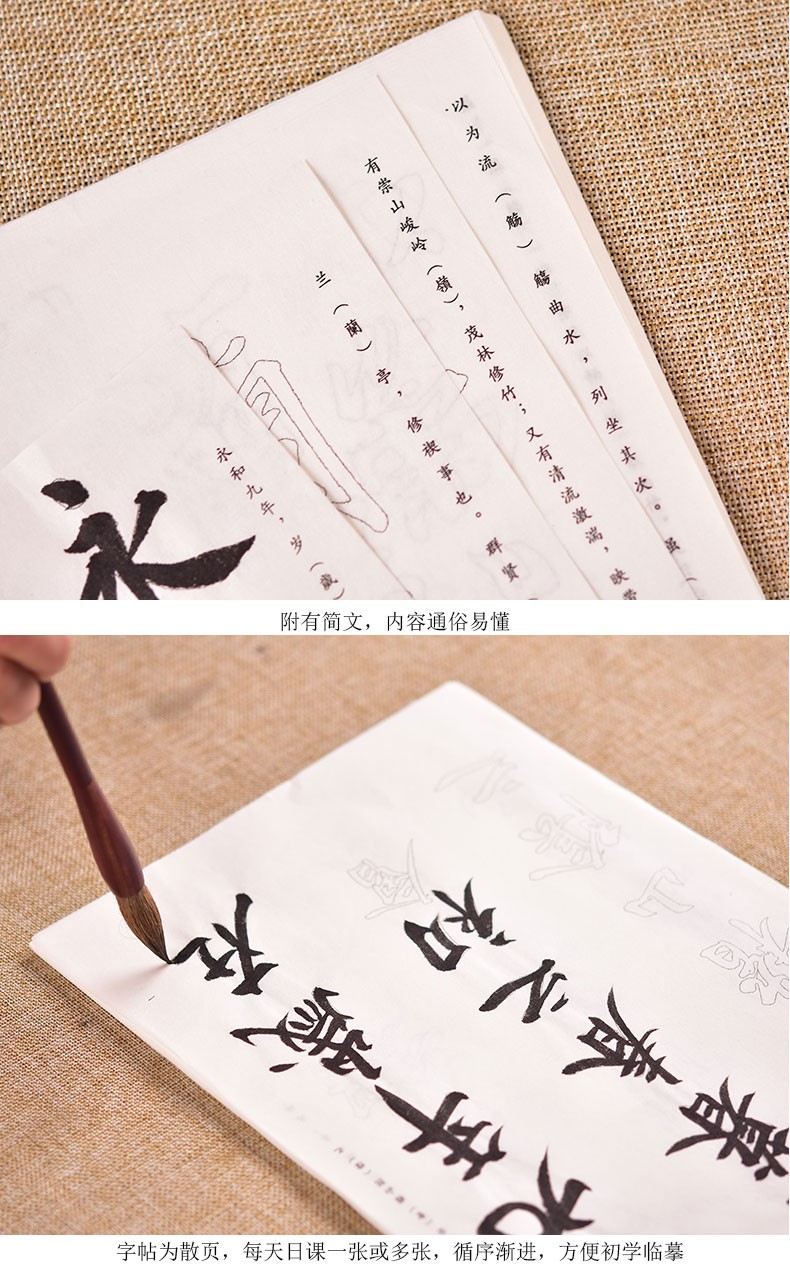 永
永和九年，岁（歲）
兰（蘭）亭，修禊事也。群贤
有崇山峻岭（嶺），茂林修竹；又有清流激湍，映带
以为流（觞）觴曲水，列坐其次。虽（
附有简文，内容通俗易懂
九年歲在
暮春之初會
稽山陰之
字帖为散页，每天日课一张或多张，循序渐进，方便初学临摹